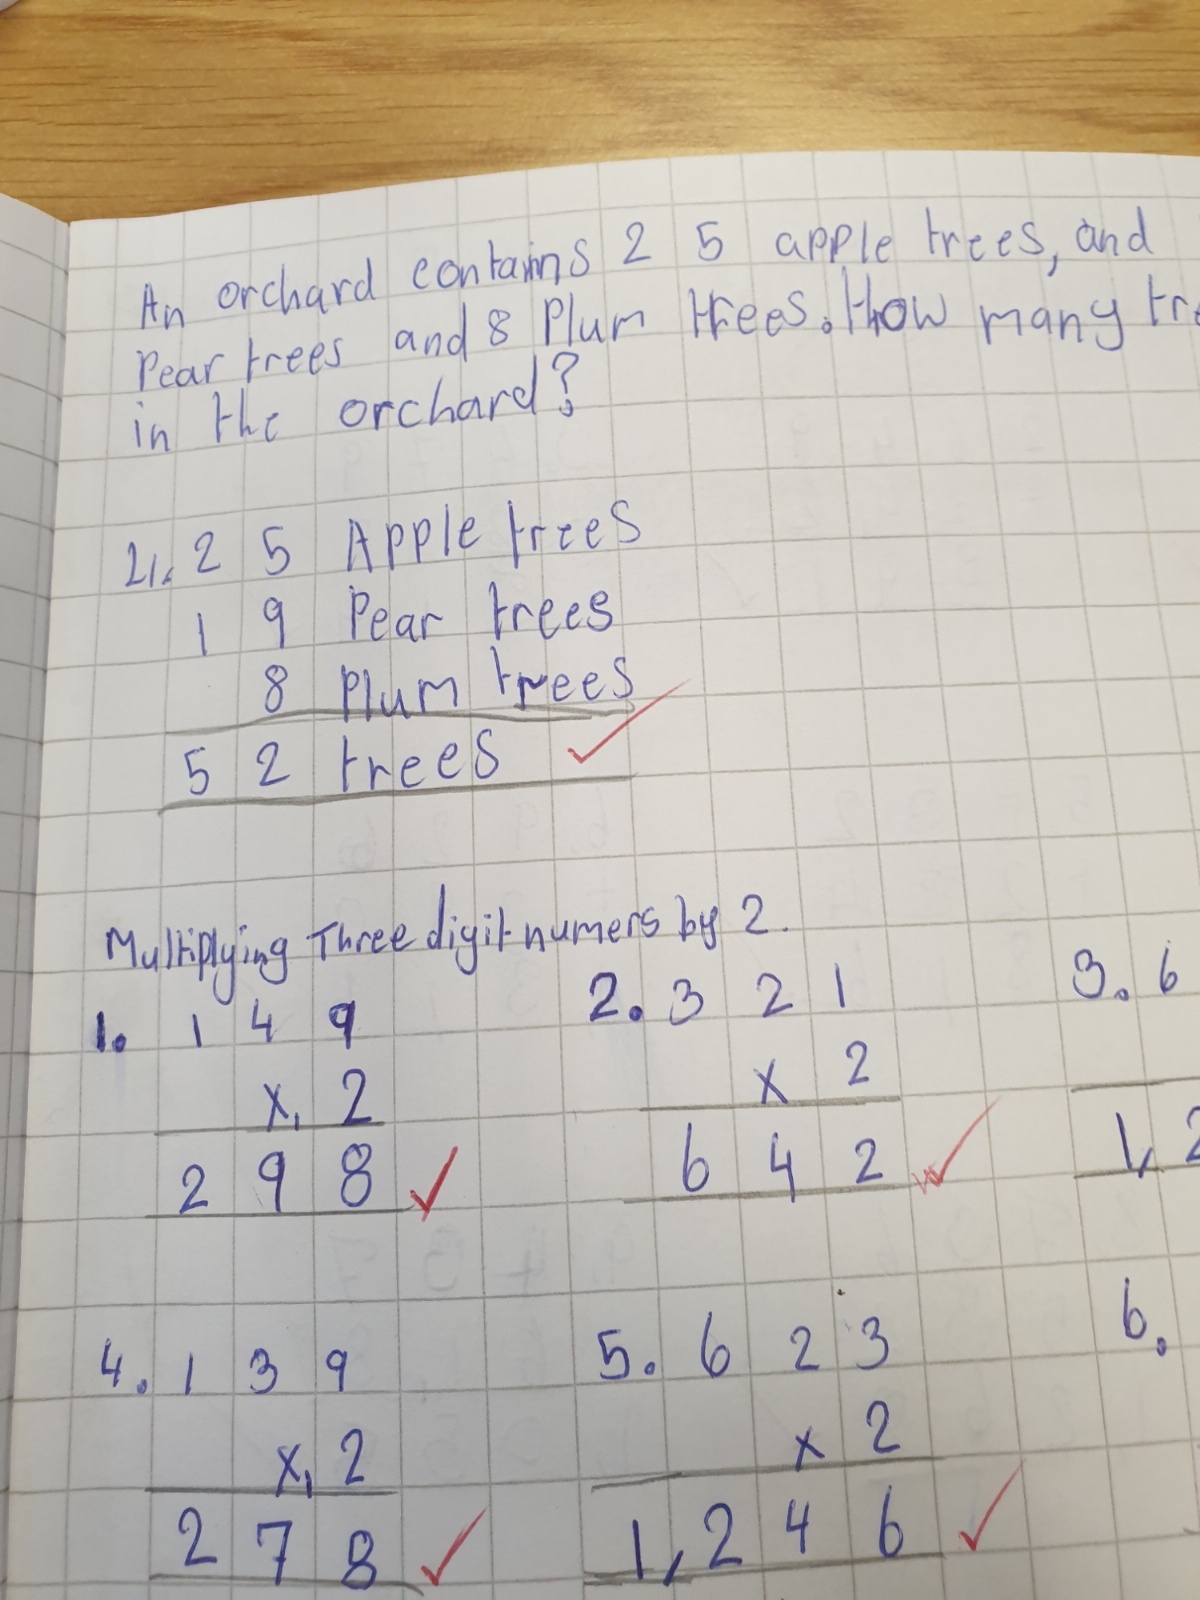 An orchard contains 2 5 apple trees, and
Pear trees and 8 Plum trees. How many tre
in the orchard?
2 5 Apple trees
1 9 Pear trees
8 Plum trees
5 2 trees
Multiplying Three digit numers by 2.
1. 1 4 9
x 2
2 9 8
2. 3 2 1
x 2
6 4 2
3. 6
1, 2
4. 1 3 9
x 2
2 7 8
5. 6 2 3
x 2
1, 2 4 6
6.